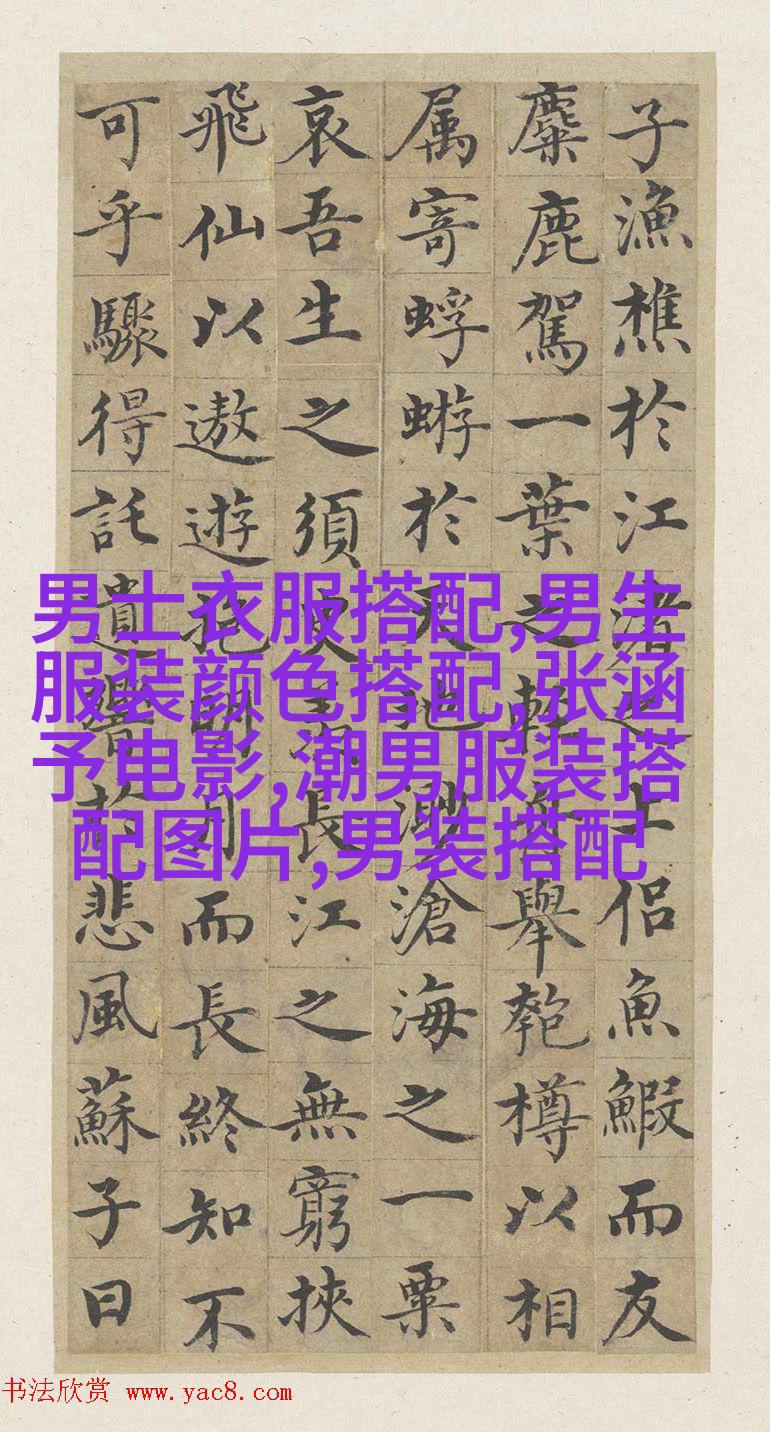 子漁樵於江渚之上侣魚鰕而友
麋鹿駕一葉之輕舟舉匏樽以相
属寄蜉蝣於天地渺滄海之一粟
哀吾生之須臾羡長江之無窮挾
飛仙以遨遊抱明月而長終知不
可乎驟得託遺響於悲風蘇子曰
男士衣服搭配,男生
服装颜色搭配,张涵
予电影,潮男服装搭
配图片,男装搭配
书法欣赏 www.yac8.com